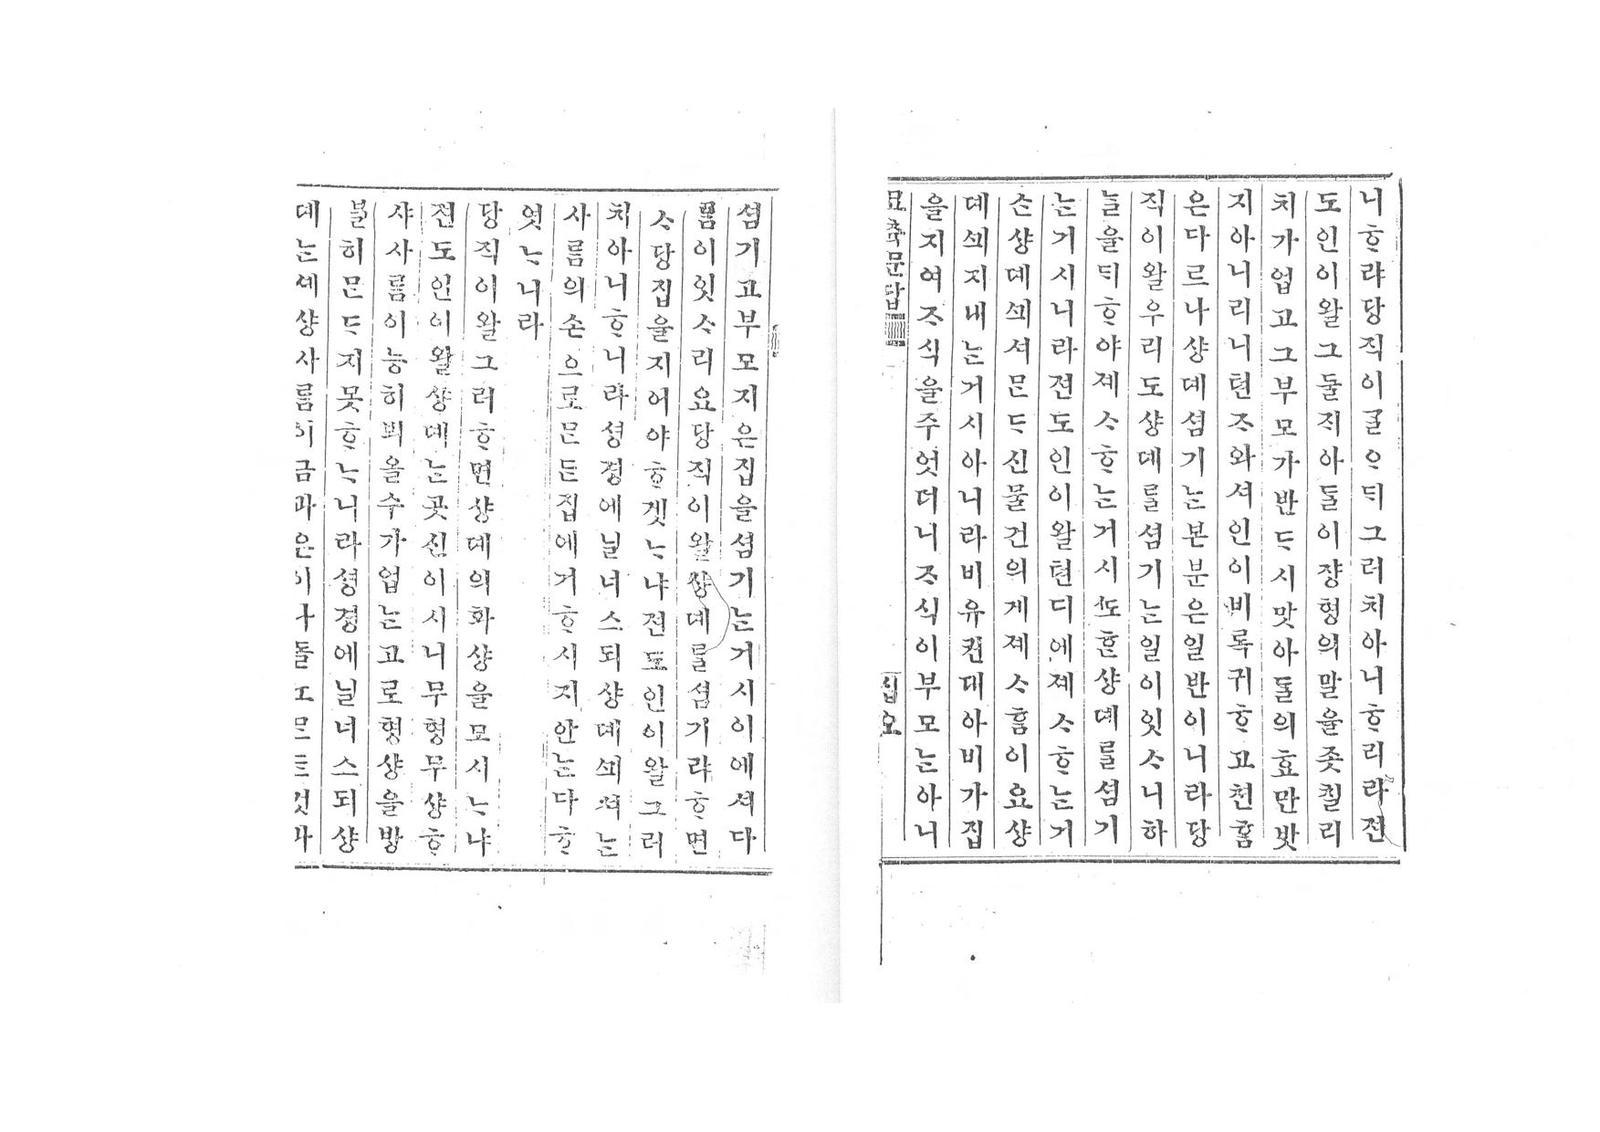 니ᄒᆞ랴당직이ᄀᆞᆯᄋᆞᄃᆡ그러치아니ᄒᆞ리라젼
도인이왈그둘ᄌᆡ아ᄃᆞᆯ이쟝형의말을좃칠리
치가업고그부모가반ᄃᆞ시맛아ᄃᆞᆯ의효만밧
지아니리니텬ᄌᆞ와셔인이비록귀ᄒᆞ고쳔ᄒᆞᆷ
은다르나샹뎨셤기ᄂᆞᆫ본분은일반이니라당
직이왈우리도샹뎨ᄅᆞᆯ셤기ᄂᆞᆫ일이잇ᄉᆞ니하
ᄂᆞᆯ을ᄃᆡᄒᆞ야졔ᄉᆞᄒᆞᄂᆞᆫ거시ᄯᅩᄒᆞᆫ샹뎨ᄅᆞᆯ셤기
ᄂᆞᆫ거시니라젼도인이왈텬디에졔ᄉᆞᄒᆞᄂᆞᆫ거
ᄉᆞᆫ샹뎨ᄭᅴ셔ᄆᆞᆫᄃᆞ신물건의게졔ᄉᆞᄒᆞᆷ이요샹
뎨ᄭᅴ지내ᄂᆞᆫ거시아니라비유컨대아비가집
을지여ᄌᆞ식을주엇더니ᄌᆞ식이부모ᄂᆞᆫ아니
묘츅문답
십오
셤기고부모지은집을셤기ᄂᆞᆫ거시이에셔다
ᄅᆞᆷ이잇ᄉᆞ리요당직이왈샹뎨ᄅᆞᆯ셤기랴ᄒᆞ면
ᄉᆞ당집을지어야ᄒᆞ겟ᄂᆞ냐젼도인이왈그러
치아니ᄒᆞ니라셩경에닐너스되샹뎨ᄭᅴ셔ᄂᆞᆫ
사ᄅᆞᆷ의손으로ᄆᆞᆫ든집에거ᄒᆞ시지안ᄂᆞᆫ다ᄒᆞ
엿ᄂᆞ니라
당직이왈그러ᄒᆞ면샹뎨의화샹을모시ᄂᆞ냐
젼도인이왈샹뎨ᄂᆞᆫ곳신이시니무형무샹ᄒᆞ
샤사ᄅᆞᆷ이능히뵈올수가업ᄂᆞᆫ고로형샹을방
불히ᄆᆞᆫᄃᆞ지못ᄒᆞᄂᆞ니라셩경에닐너스되샹
뎨ᄂᆞᆫ셰샹사ᄅᆞᆷ이금과은이나돌